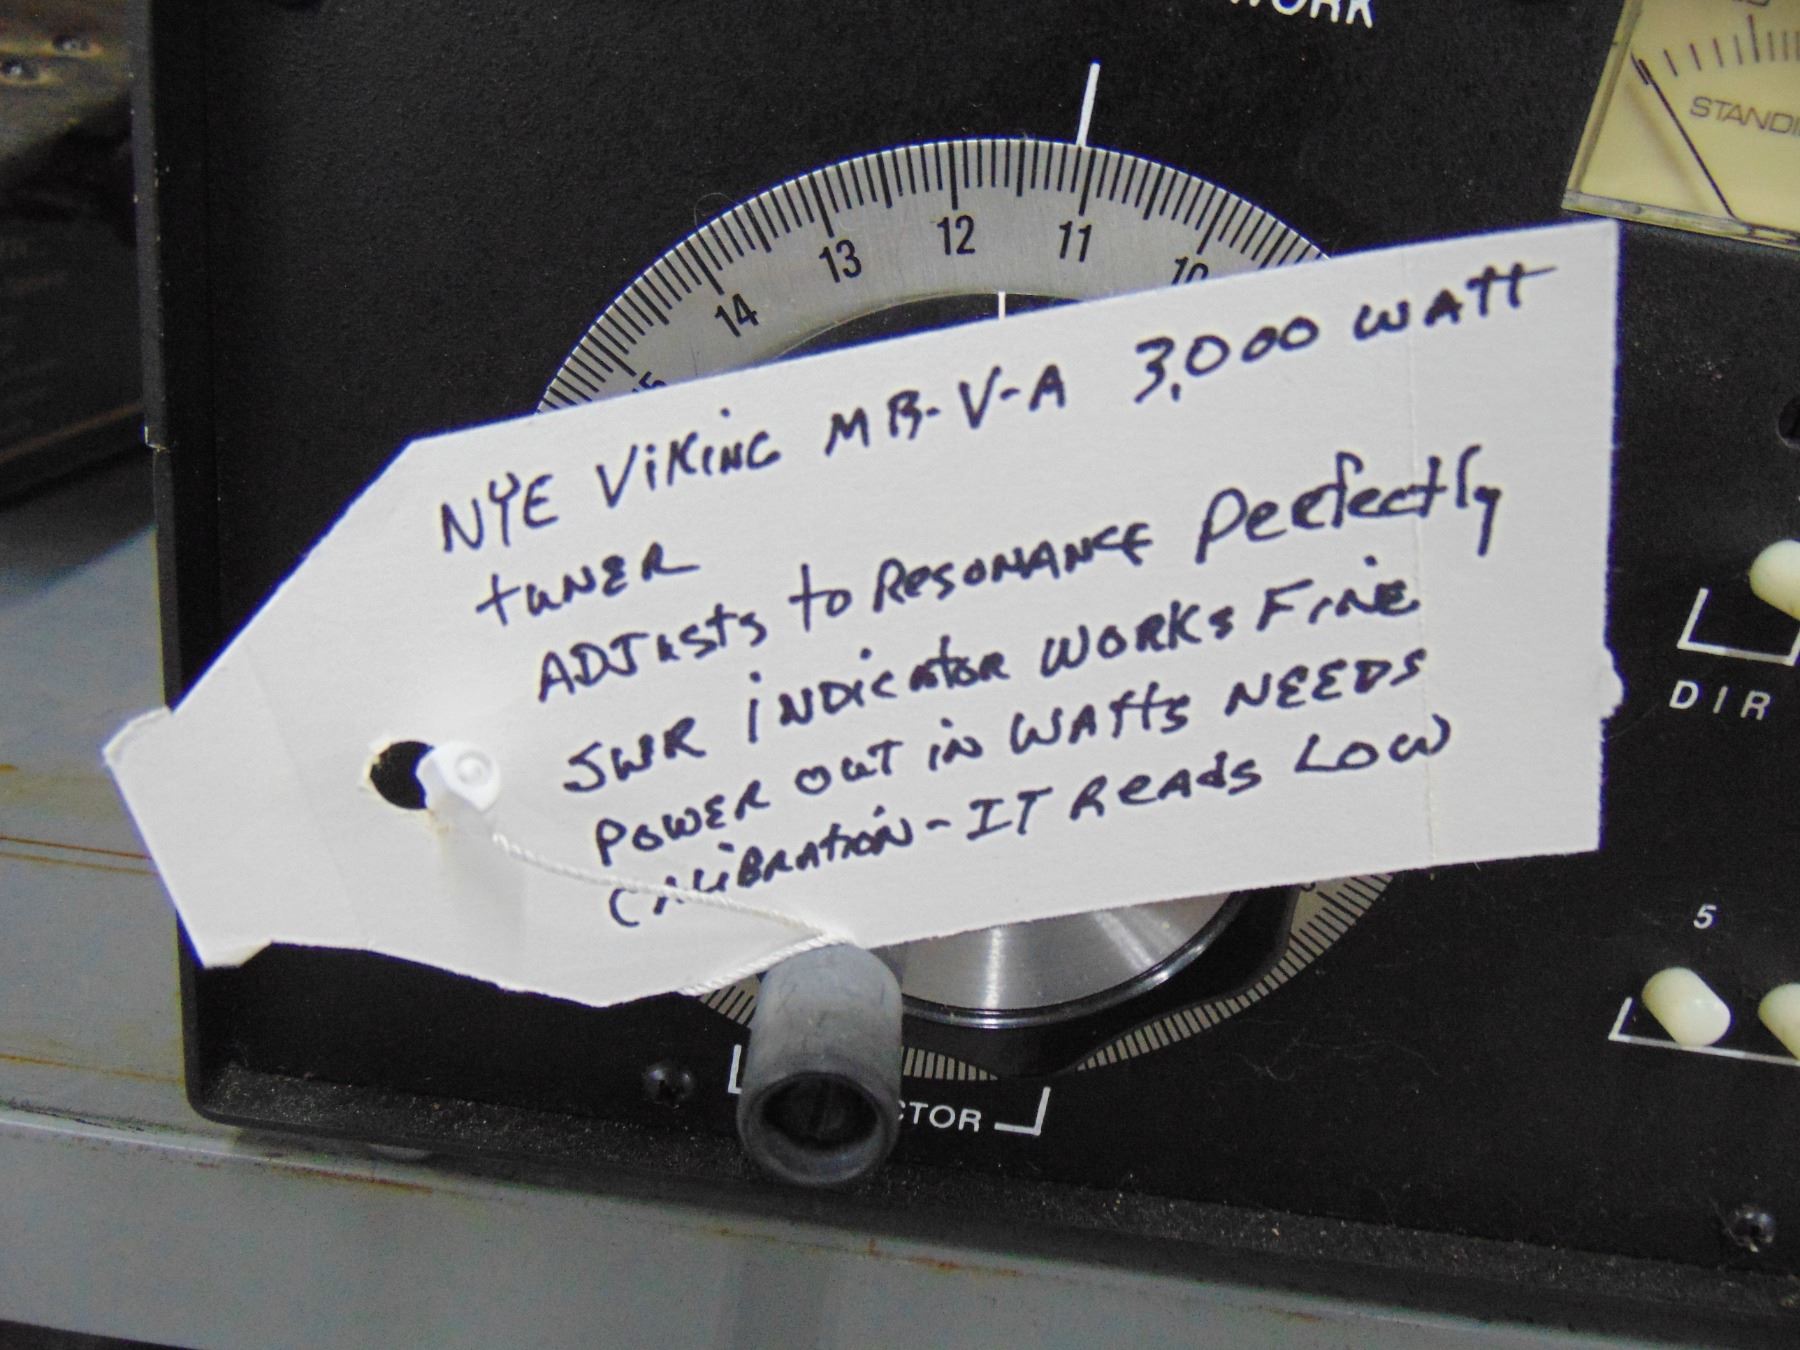 STANDI
14 13 12 11 10
NYE VIKING MB-V-A 3,000 WATT
tuNER
ADJusts to RESONANCE Perfectly
SWR iNDicator WORKS FiNE
POWER OUT iN WAtts NEEDS
CALiBRAtiON - IT ReAds LOW
DIR
5